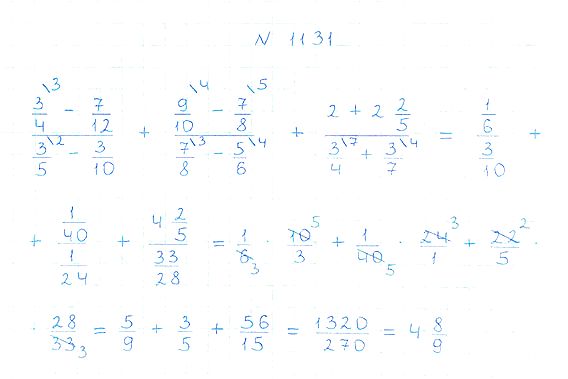 N 1131
(3/4\3 - 7/12)/(3/5\2 - 3/10) + (9/10\4 - 7/8\5)/(7/8\3 - 5/6\4) + (2 + 2 2/5)/(3/4\7 + 3/7\4) = (1/6)/(3/10) +
+ (1/40)/(1/24) + (4 2/5)/(33/28) = 1/6 3 · 10 5/3 + 1/40 5 · 24 3/1 + 22 2/5 ·
· 28/33 3 = 5/9 + 3/5 + 56/15 = 1320/270 = 4 8/9